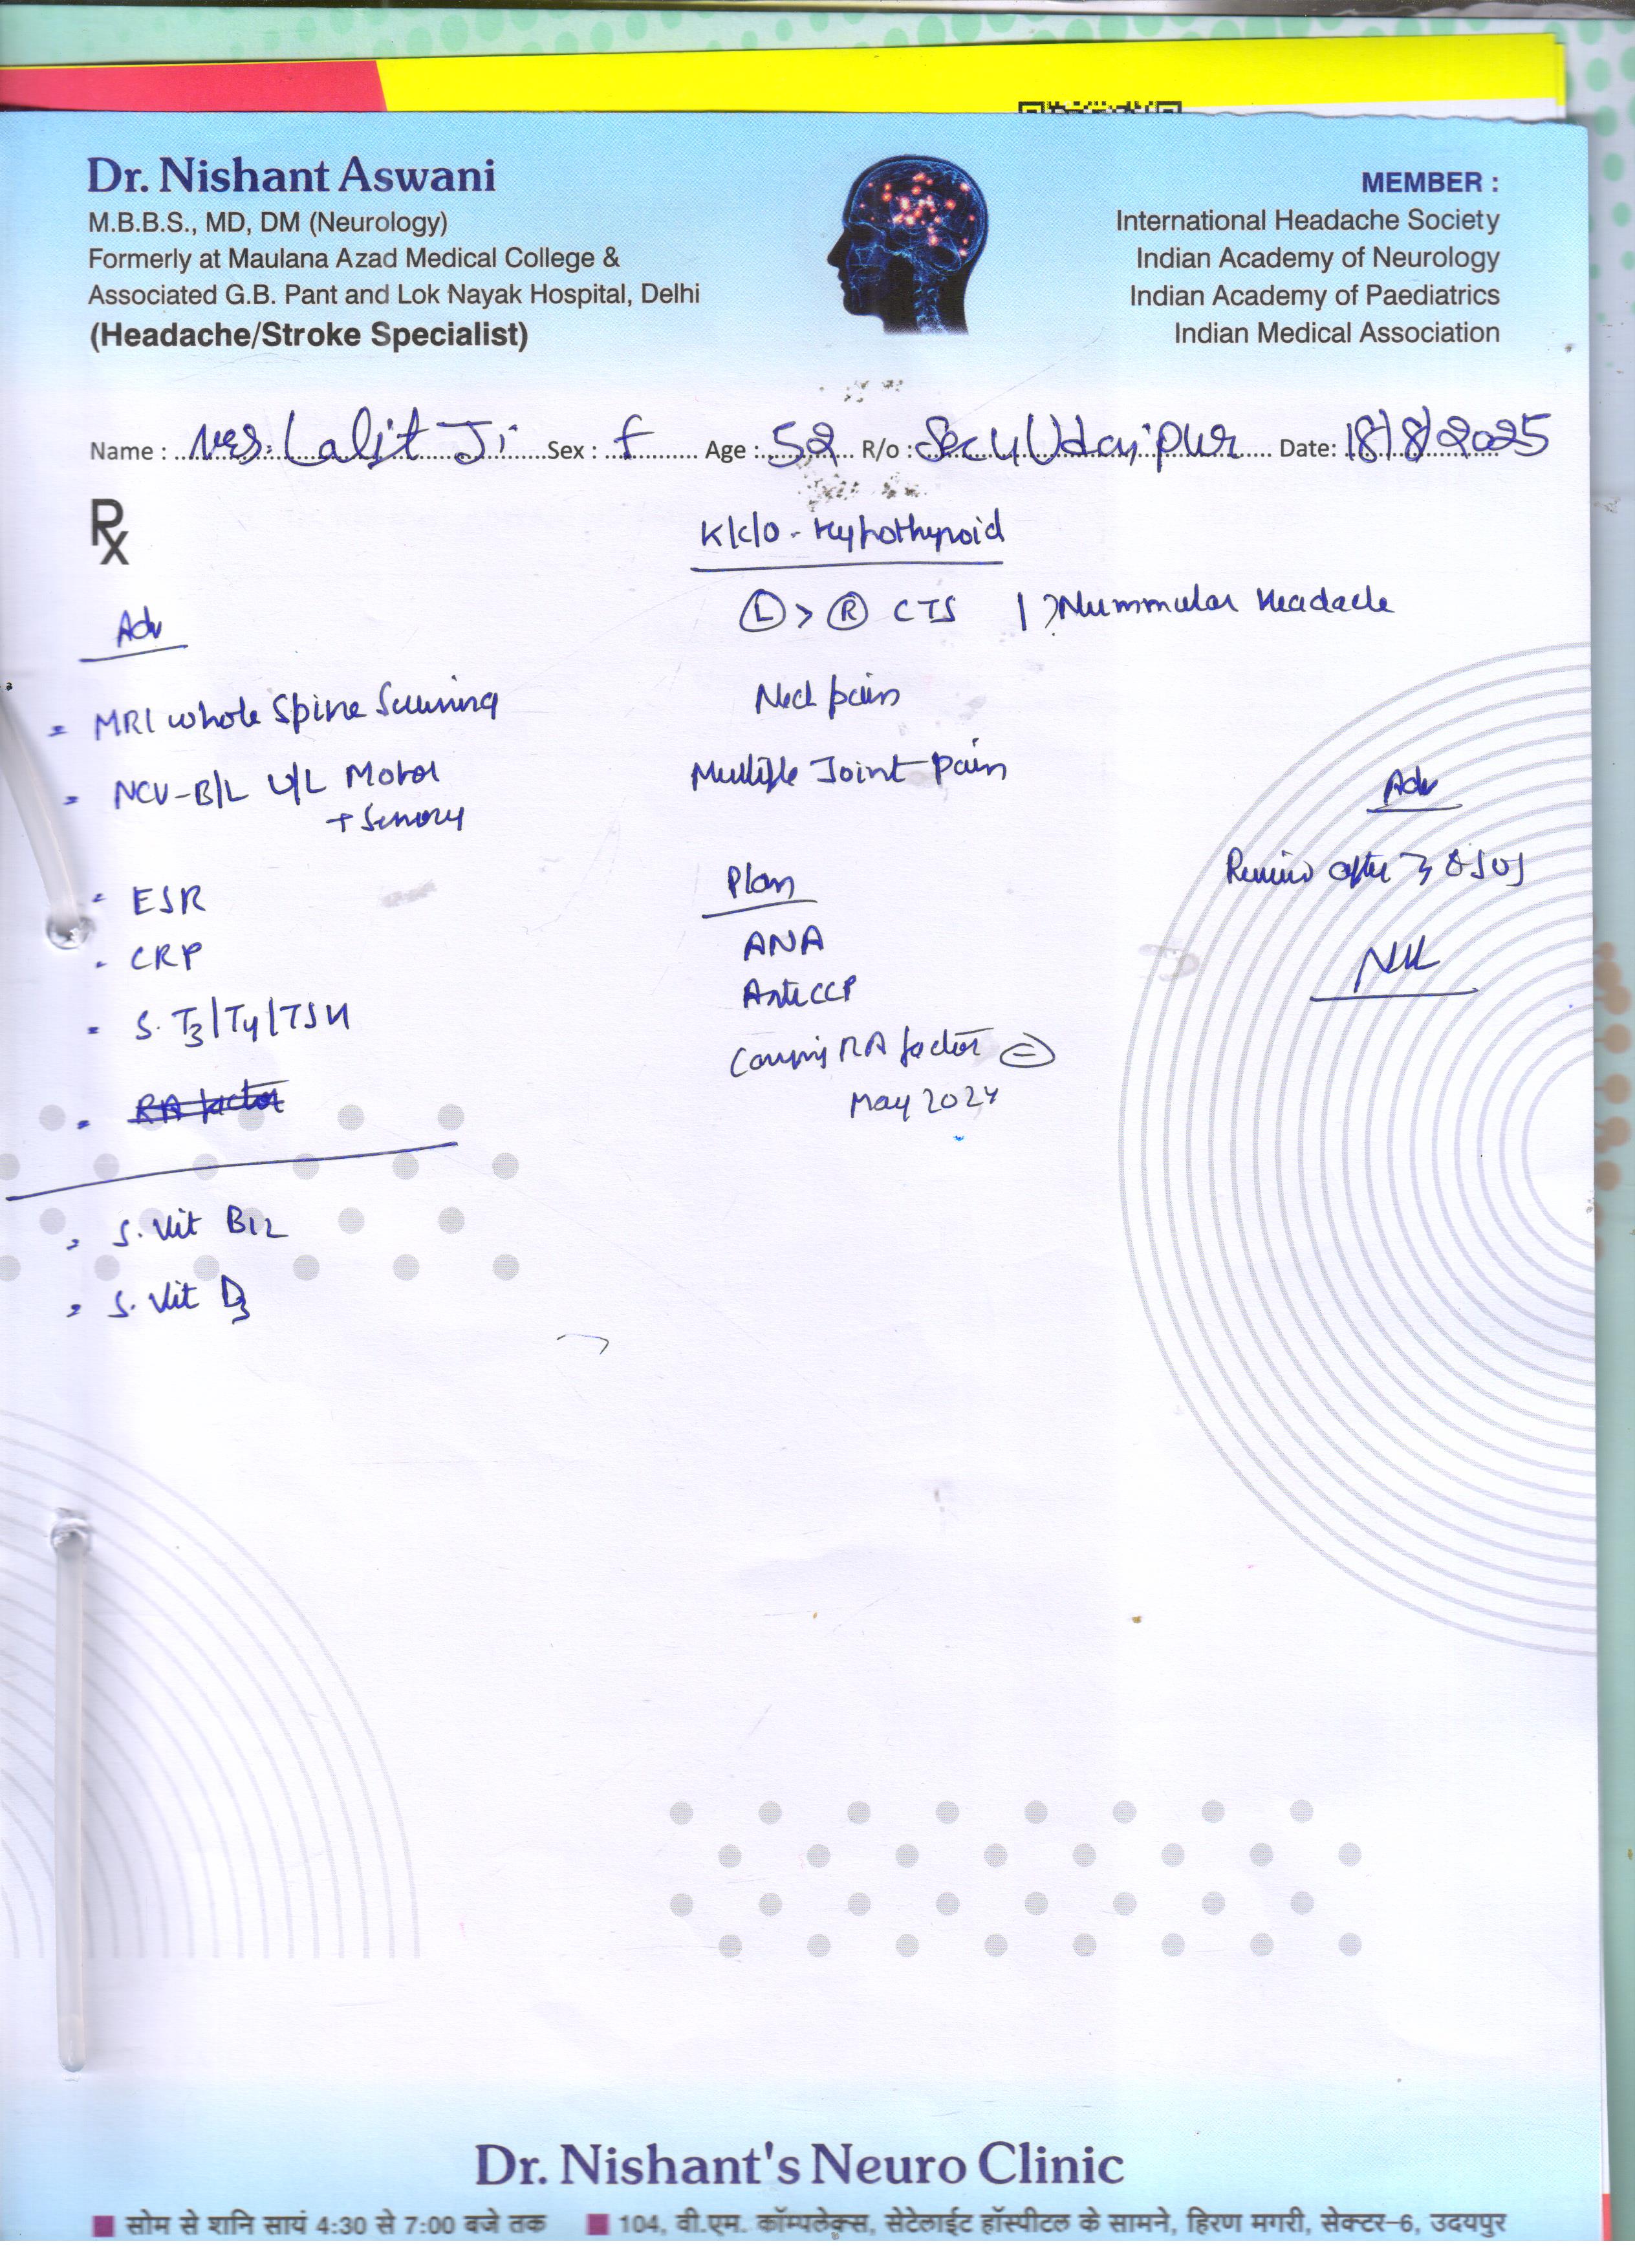 Dr. Nishant Aswani
M.B.B.S., MD, DM (Neurology)
Formerly at Maulana Azad Medical College &
Associated G.B. Pant and Lok Nayak Hospital, Delhi
(Headache/Stroke Specialist)
MEMBER :
International Headache Society
Indian Academy of Neurology
Indian Academy of Paediatrics
Indian Medical Association
Name : Mrs. Lalit Ji Sex : f Age : 52 R/o : Sec 4 Udaipur Date: 18/8/2025
Rx
K/c/o - Hypothyroid
L > R CTS | ?Nummular Headache
Neck pain
Multiple Joint pain
Adv
- MRI whole Spine Screening
- NCV - B/L U/L Motor
+ Sensory
- ESR
- CRP
- S. T3/T4/TSH
- RA factor
- S. Vit B12
- S. Vit D3
Plan
ANA
Anti CCP
RA factor (-)
May 2024
Adv
Review after
Dr. Nishant's Neuro Clinic
सोम से शनि सायं 4:30 से 7:00 बजे तक
104, वी.एम. कॉम्पलेक्स, सेटेलाईट हॉस्पीटल के सामने, हिरण मगरी, सेक्टर-6, उदयपुर